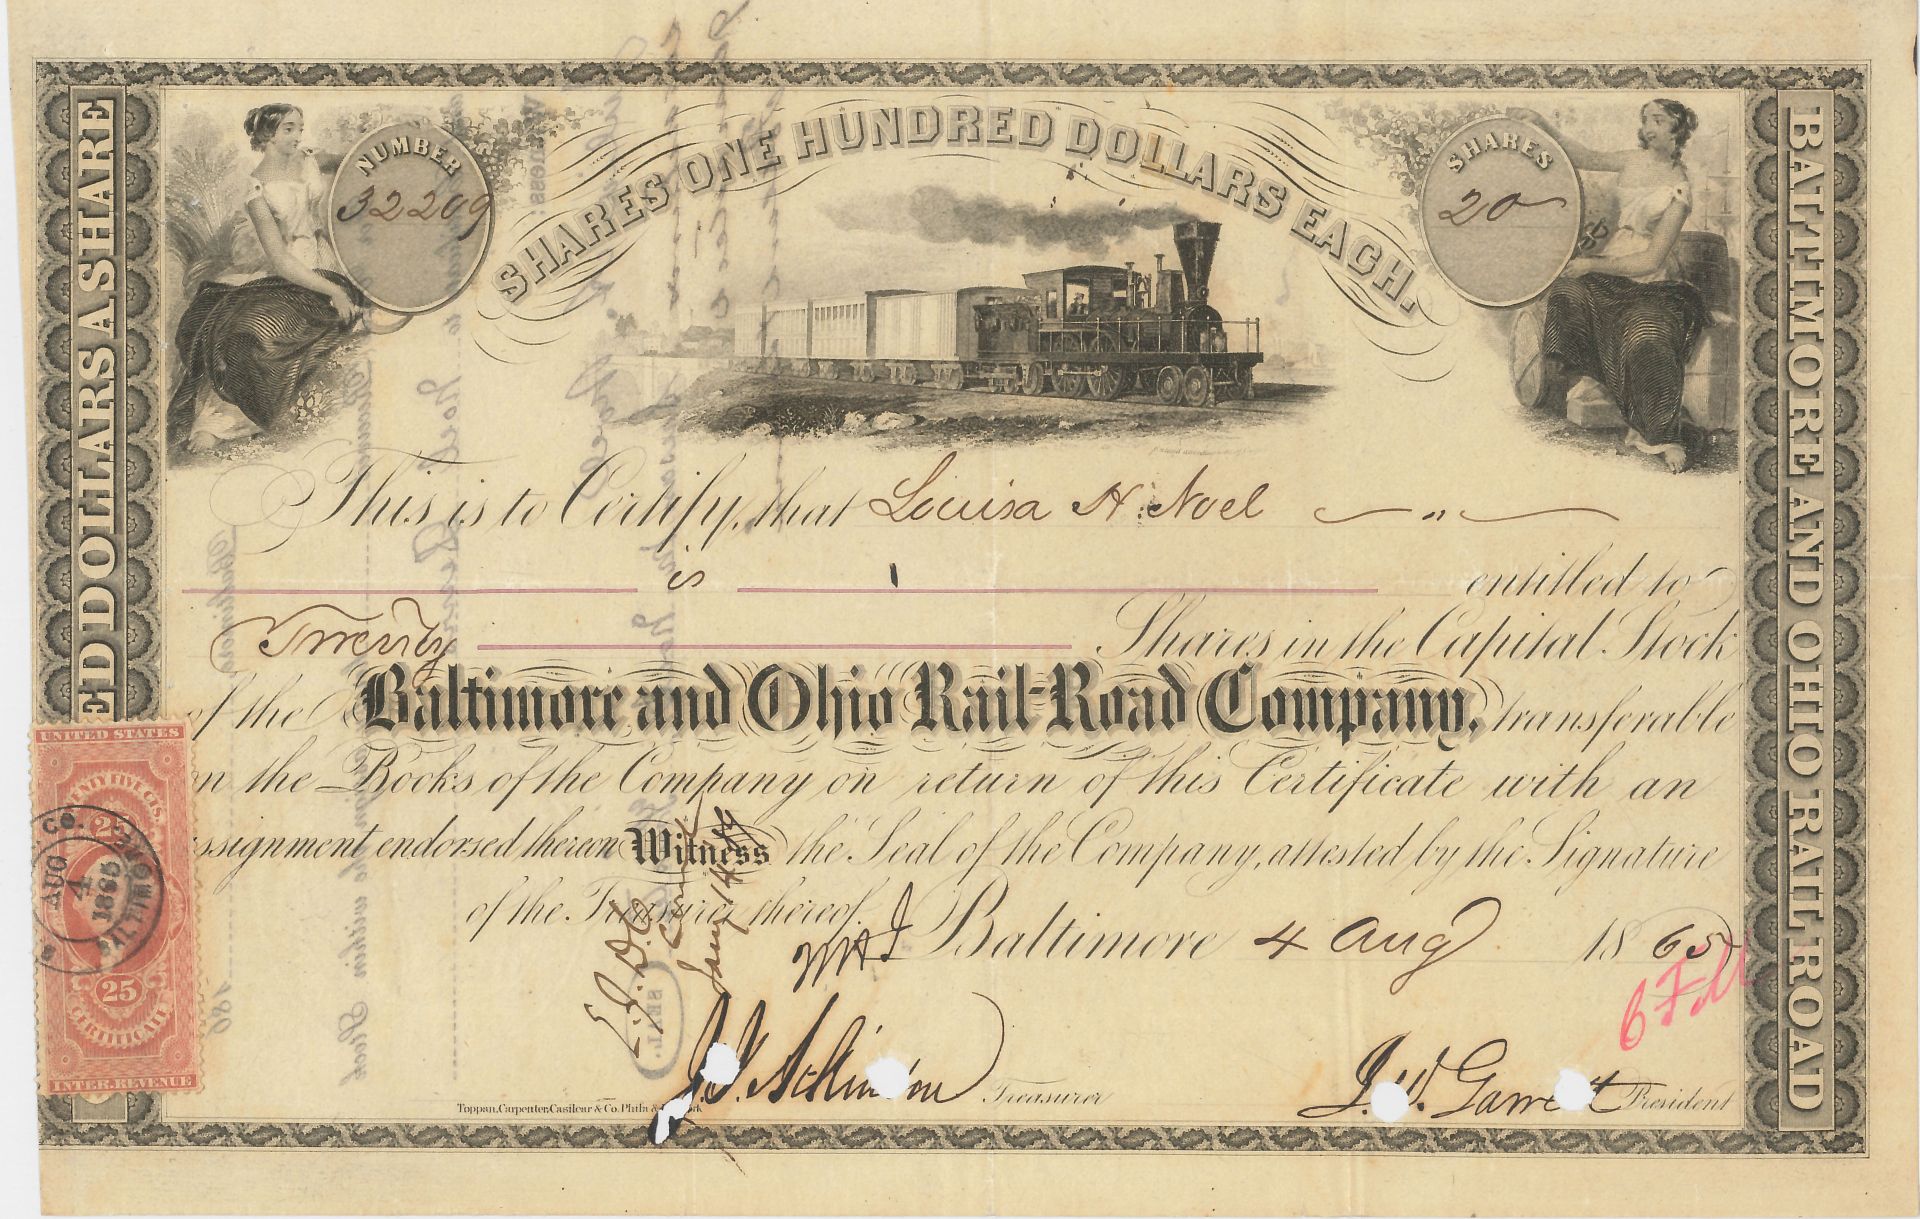 SHARES ONE HUNDRED DOLLARS EACH.
NUMBER
32209
SHARES
20
ED DOLLARS A SHARE
BALTIMORE AND OHIO RAIL ROAD
This is to Certify, that Louisa H. Noel
is entitled to
Twenty Shares in the Capital Stock
of the Baltimore and Ohio Rail-Road Company, transferable
n the Books of the Company on return of this Certificate with an
ssignment endorsed thereon Witness the Seal of the Company, attested by the Signature
of the Treasurer thereof.
Baltimore 4 Aug 1865
J. W. Garrett President
Treasurer
Toppan, Carpenter, Casilear & Co. Phila &
UNITED STATES
TWENTY FIVE CTS.
25
25
CERTIFICATE
INTER. REVENUE
CO.
AUG
4
1865
BALTIMORE